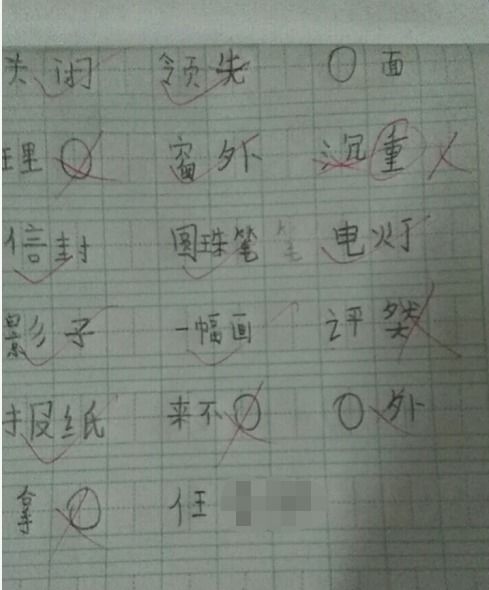 关闭 领先 〇面
理〇 窗外 沉重
信封 圆珠笔 笔 电灯
影子 一幅画 评类
报纸 来不〇 〇外
拿〇 任